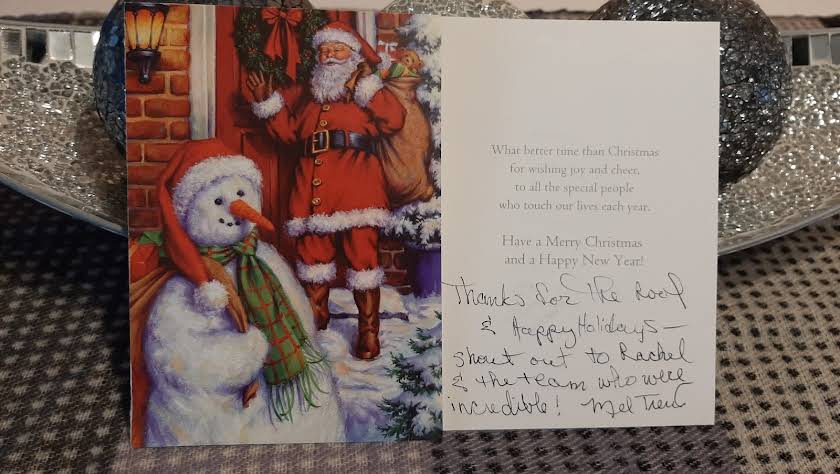 What better time than Christmas
for wishing joy and cheer,
to all the special people
who touch our lives each year.
Have a Merry Christmas
and a Happy New Year!
Thanks for the Roof
& Happy Holidays —
shout out to Rachel
& the team who were
incredible! Mel